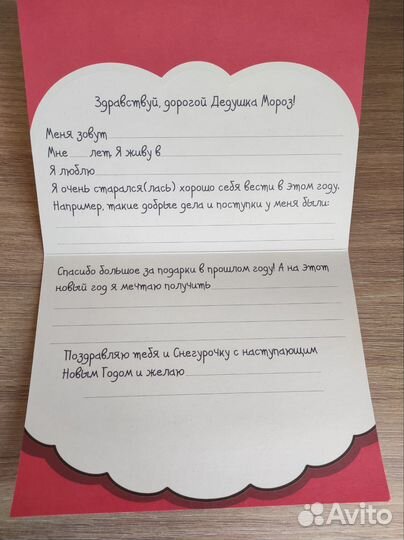 Здравствуй, дорогой Дедушка Мороз!
Меня зовут
Мне лет, Я живу в
Я люблю
Я очень старался(лась) хорошо себя вести в этом году.
Например, такие добрые дела и поступки у меня были:
Спасибо большое за подарки в прошлом году! А на этот
новый год я мечтаю получить
Поздравляю тебя и Снегурочку с наступающим
Новым Годом и желаю
Avito